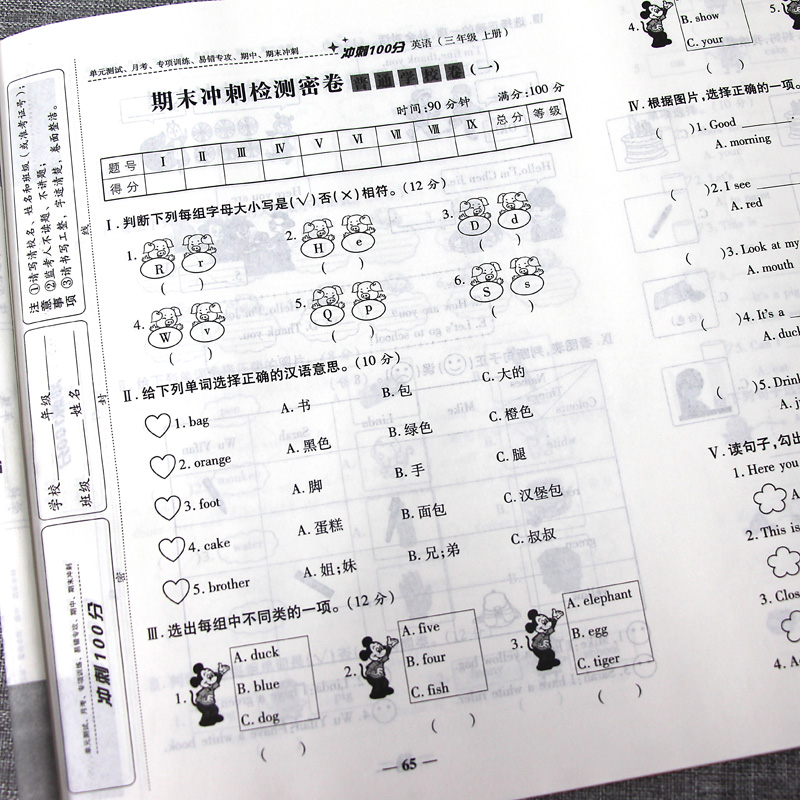 单元测试、月考、专项训练、易错专攻、期中、期末冲刺
冲刺100分 英语(三年级 上册)
期末冲刺检测密卷 普通学校卷 (一)
时间:90分钟 满分:100分
题号 Ⅰ Ⅱ Ⅲ Ⅳ Ⅴ Ⅵ Ⅶ Ⅷ Ⅸ 总分 等级
得分
Ⅰ.判断下列每组字母大小写是(√)否(×)相符。(12分)
1. R r ( )
2. H e ( )
3. D d ( )
4. W v ( )
5. Q P ( )
6. S s ( )
Ⅱ.给下列单词选择正确的汉语意思。(10分)
1. bag A. 书 B. 包 C. 大的
2. orange A. 黑色 B. 绿色 C. 橙色
3. foot A. 脚 B. 手 C. 腿
4. cake A. 蛋糕 B. 面包 C. 汉堡包
5. brother A. 姐;妹 B. 兄;弟 C. 叔叔
Ⅲ.选出每组中不同类的一项。(12分)
1. A. duck
B. blue
C. dog
( )
2. A. five
B. four
C. fish
( )
3. A. elephant
B. egg
C. tiger
( )
— 65 —
4. B. show
C. your
( )
5.
Ⅳ.根据图片,选择正确的一项。
( )1. Good
A. morning
( )2. I see
A. red
( )3. Look at my
A. mouth
( )4. It's a
A. duck
( )5. Drink
Ⅴ.读句子,勾出
1. Here you
2. This is
3. Close
4.
注意事项
①请写清校名、姓名和班级(或准考证号);
②监考人不读题、不讲题;
③请书写工整,字迹清楚,卷面整洁。
学校 年级
班级 姓名
线
封
密
单元测试、月考、专项训练、易错专攻、期中、期末冲刺
冲刺100分